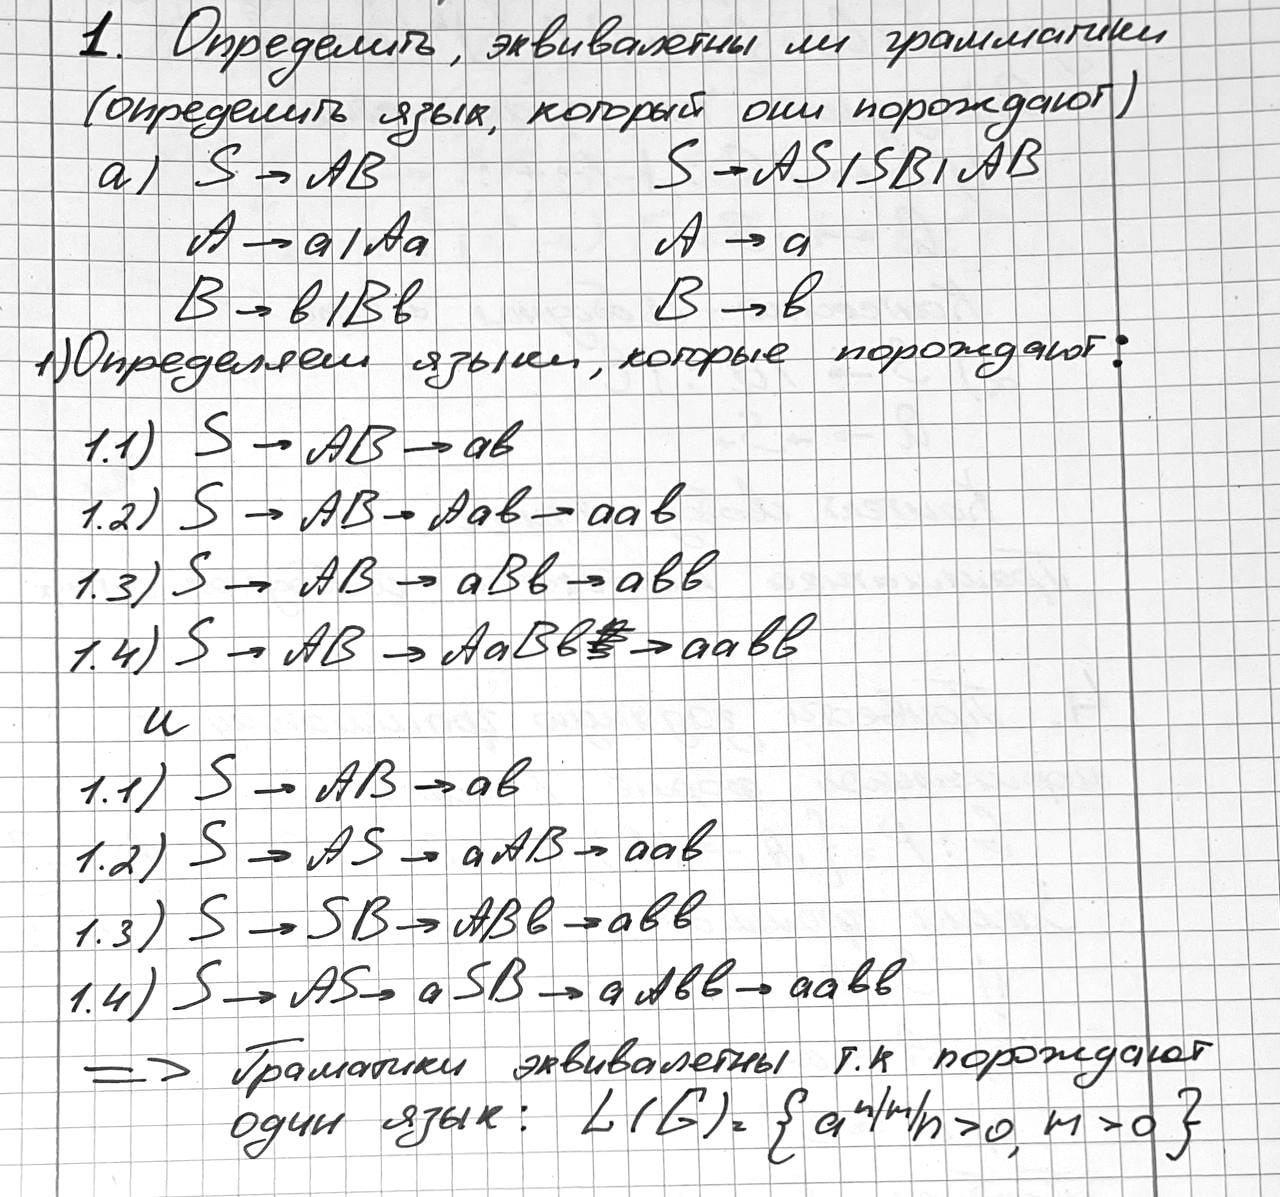 1. Определить, эквивалетны ли грамматики
(определить язык, который они порождают)
а) S → AB S → AS | SB | AB
A → a | Aa A → a
B → в | Bв B → в
1) Определяем языки, которые порождают:
1.1) S → AB → aв
1.2) S → AB → Aaв → aaв
1.3) S → AB → aBв → aвв
1.4) S → AB → AaBв → aaвв
и
1.1) S → AB → aв
1.2) S → AS → aAB → aaв
1.3) S → SB → ABв → aвв
1.4) S → AS → aSB → aAвв → aaвв
=> Граматики эквивалетны т.к порождают
один язык: L(G) = { a^n/m/n > 0, m > 0 }